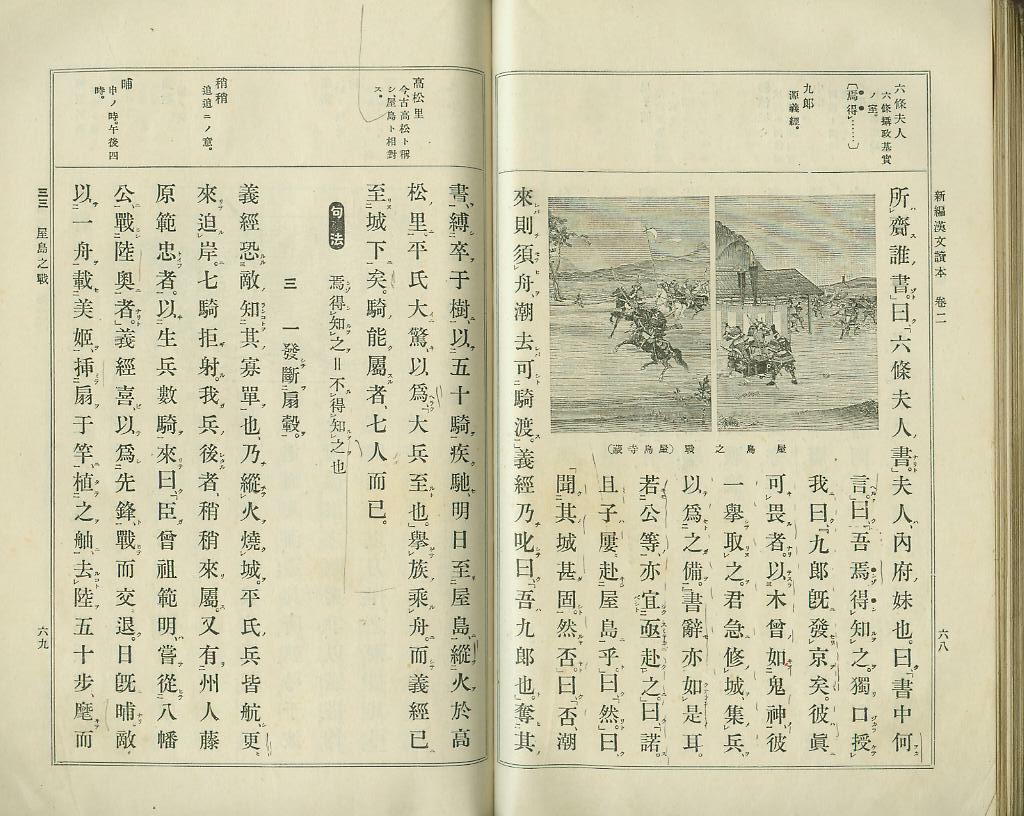 新編漢文讀本 卷二
六八
六條夫人
六條攝政基實
ノ室。
〔焉得……〕
九郎
源義經。
所齎誰書。曰、「六條夫人書。」夫人、內府妹也。曰、「書中何
言。」曰、「吾焉得知之。獨口授
我曰、『九郎旣發京矣。彼眞
可畏者。以木曾如鬼神、彼
一擧取之。君急修城、集兵
以爲之備。』書辭亦如是耳。
若公等、亦宜亟赴之。」曰、「諾。
且子屢赴屋島乎。」曰、「然。」曰、
「聞其城甚固。然否。」曰、「否、潮
來則須舟、潮去可騎渡。」義經乃叱曰、「吾九郎也。」奪其
屋島之戰（屋島寺藏）
高松里
今、古高松ト稱
シ屋島ト相對
ス。
稍稍
追追ニノ意。
晡
申ノ時。午後四
時。
書、縛卒于樹、以五十騎疾馳、明日至屋島、縱火於高
松里。平氏大驚、以爲、「大兵至也。」擧族乘舟。而義經已
至城下矣。騎能屬者、七人而已。
句法
焉得知之＝不得知之也
三 一發斷扇轂。
義經恐敵知其寡單也、乃縱火燒城。平氏兵皆航、更
來迫岸。七騎拒射。我兵後者、稍稍來屬。又有州人藤
原範忠者。以生兵數騎來曰、「臣曾祖範明、嘗從八幡
公、戰陸奧者。」義經喜、以爲先鋒。戰而交退。日旣晡。敵
以一舟載美姬、揷扇于竿、植之舳、去陸五十步、麾而
三三 屋島之戰
六九